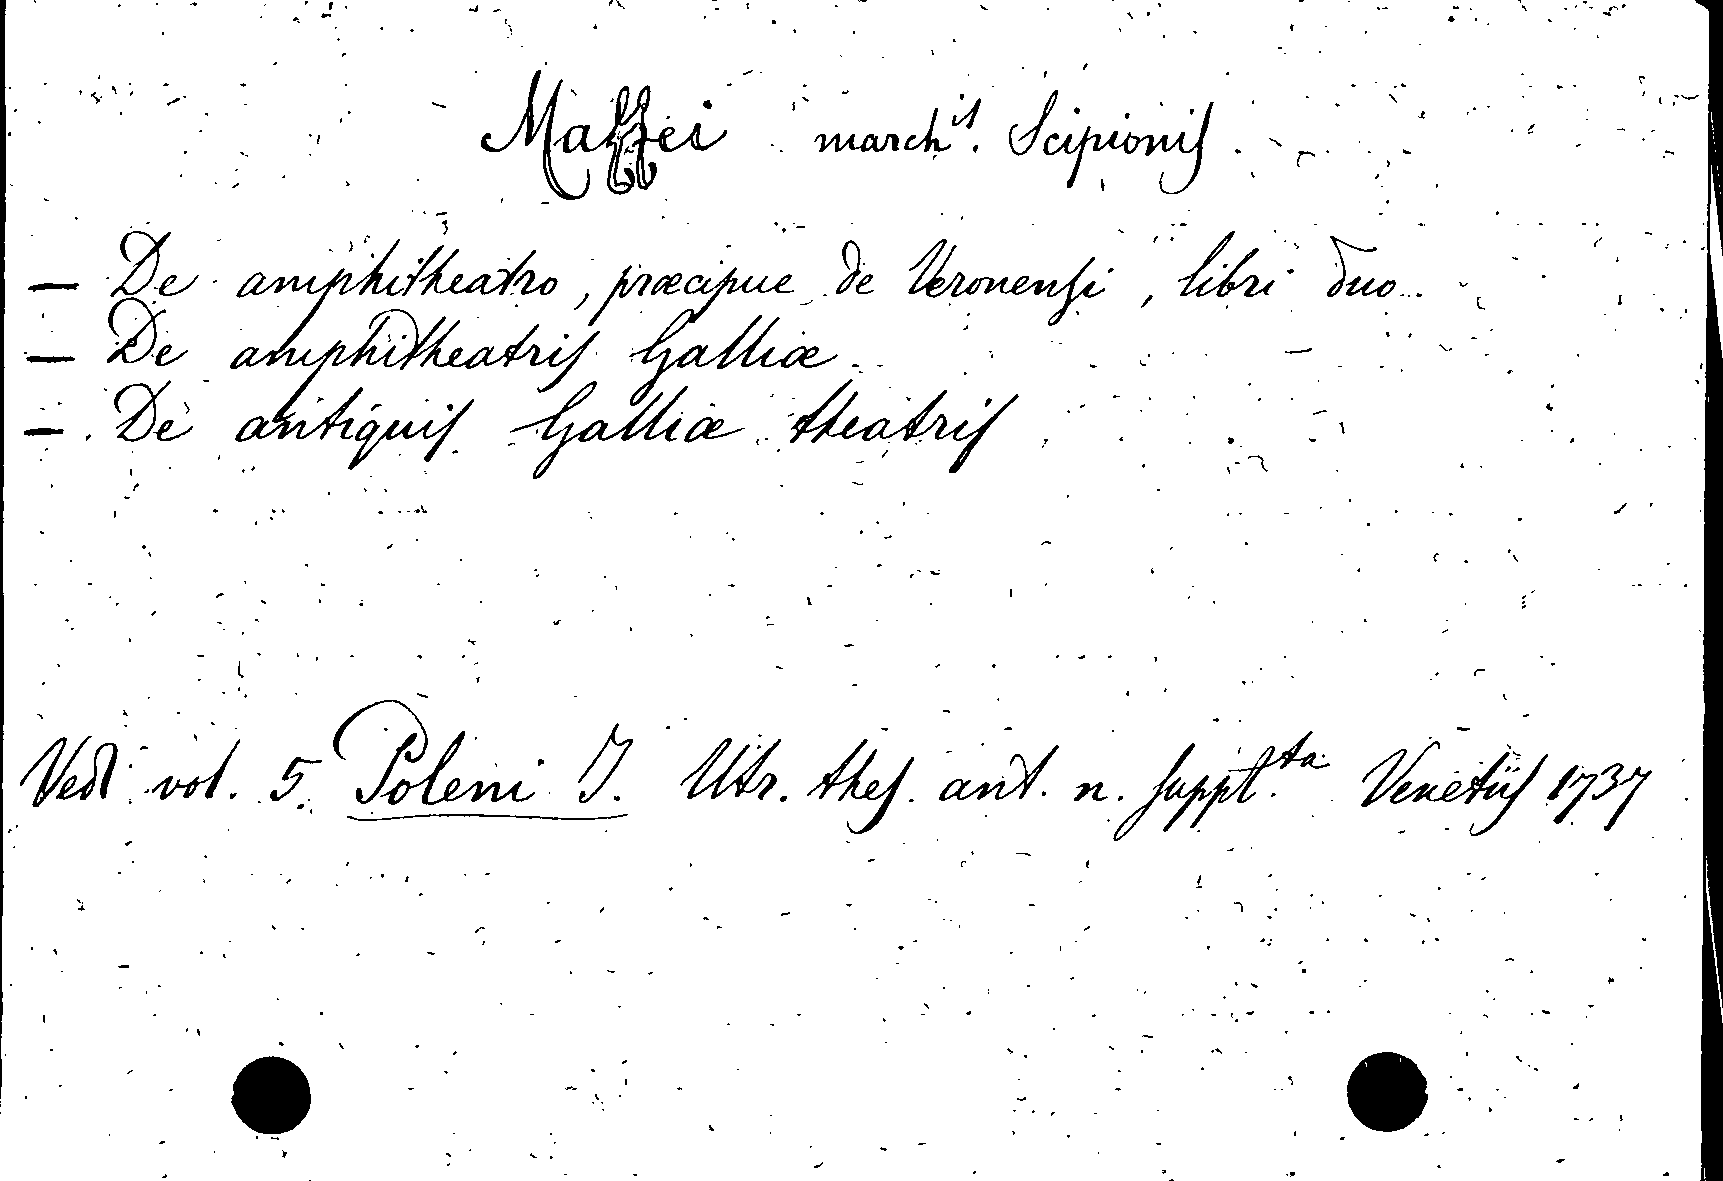 Maffei march.is Scipionis
— De amphitheatro, præcipue de Veronensi, libri duo
— De amphitheatris Galliæ
— De antiquis Galliæ theatris
Vedi vol. 5. Poleni J. Utr. thes. ant. n. suppl.ta Venetiis 1737